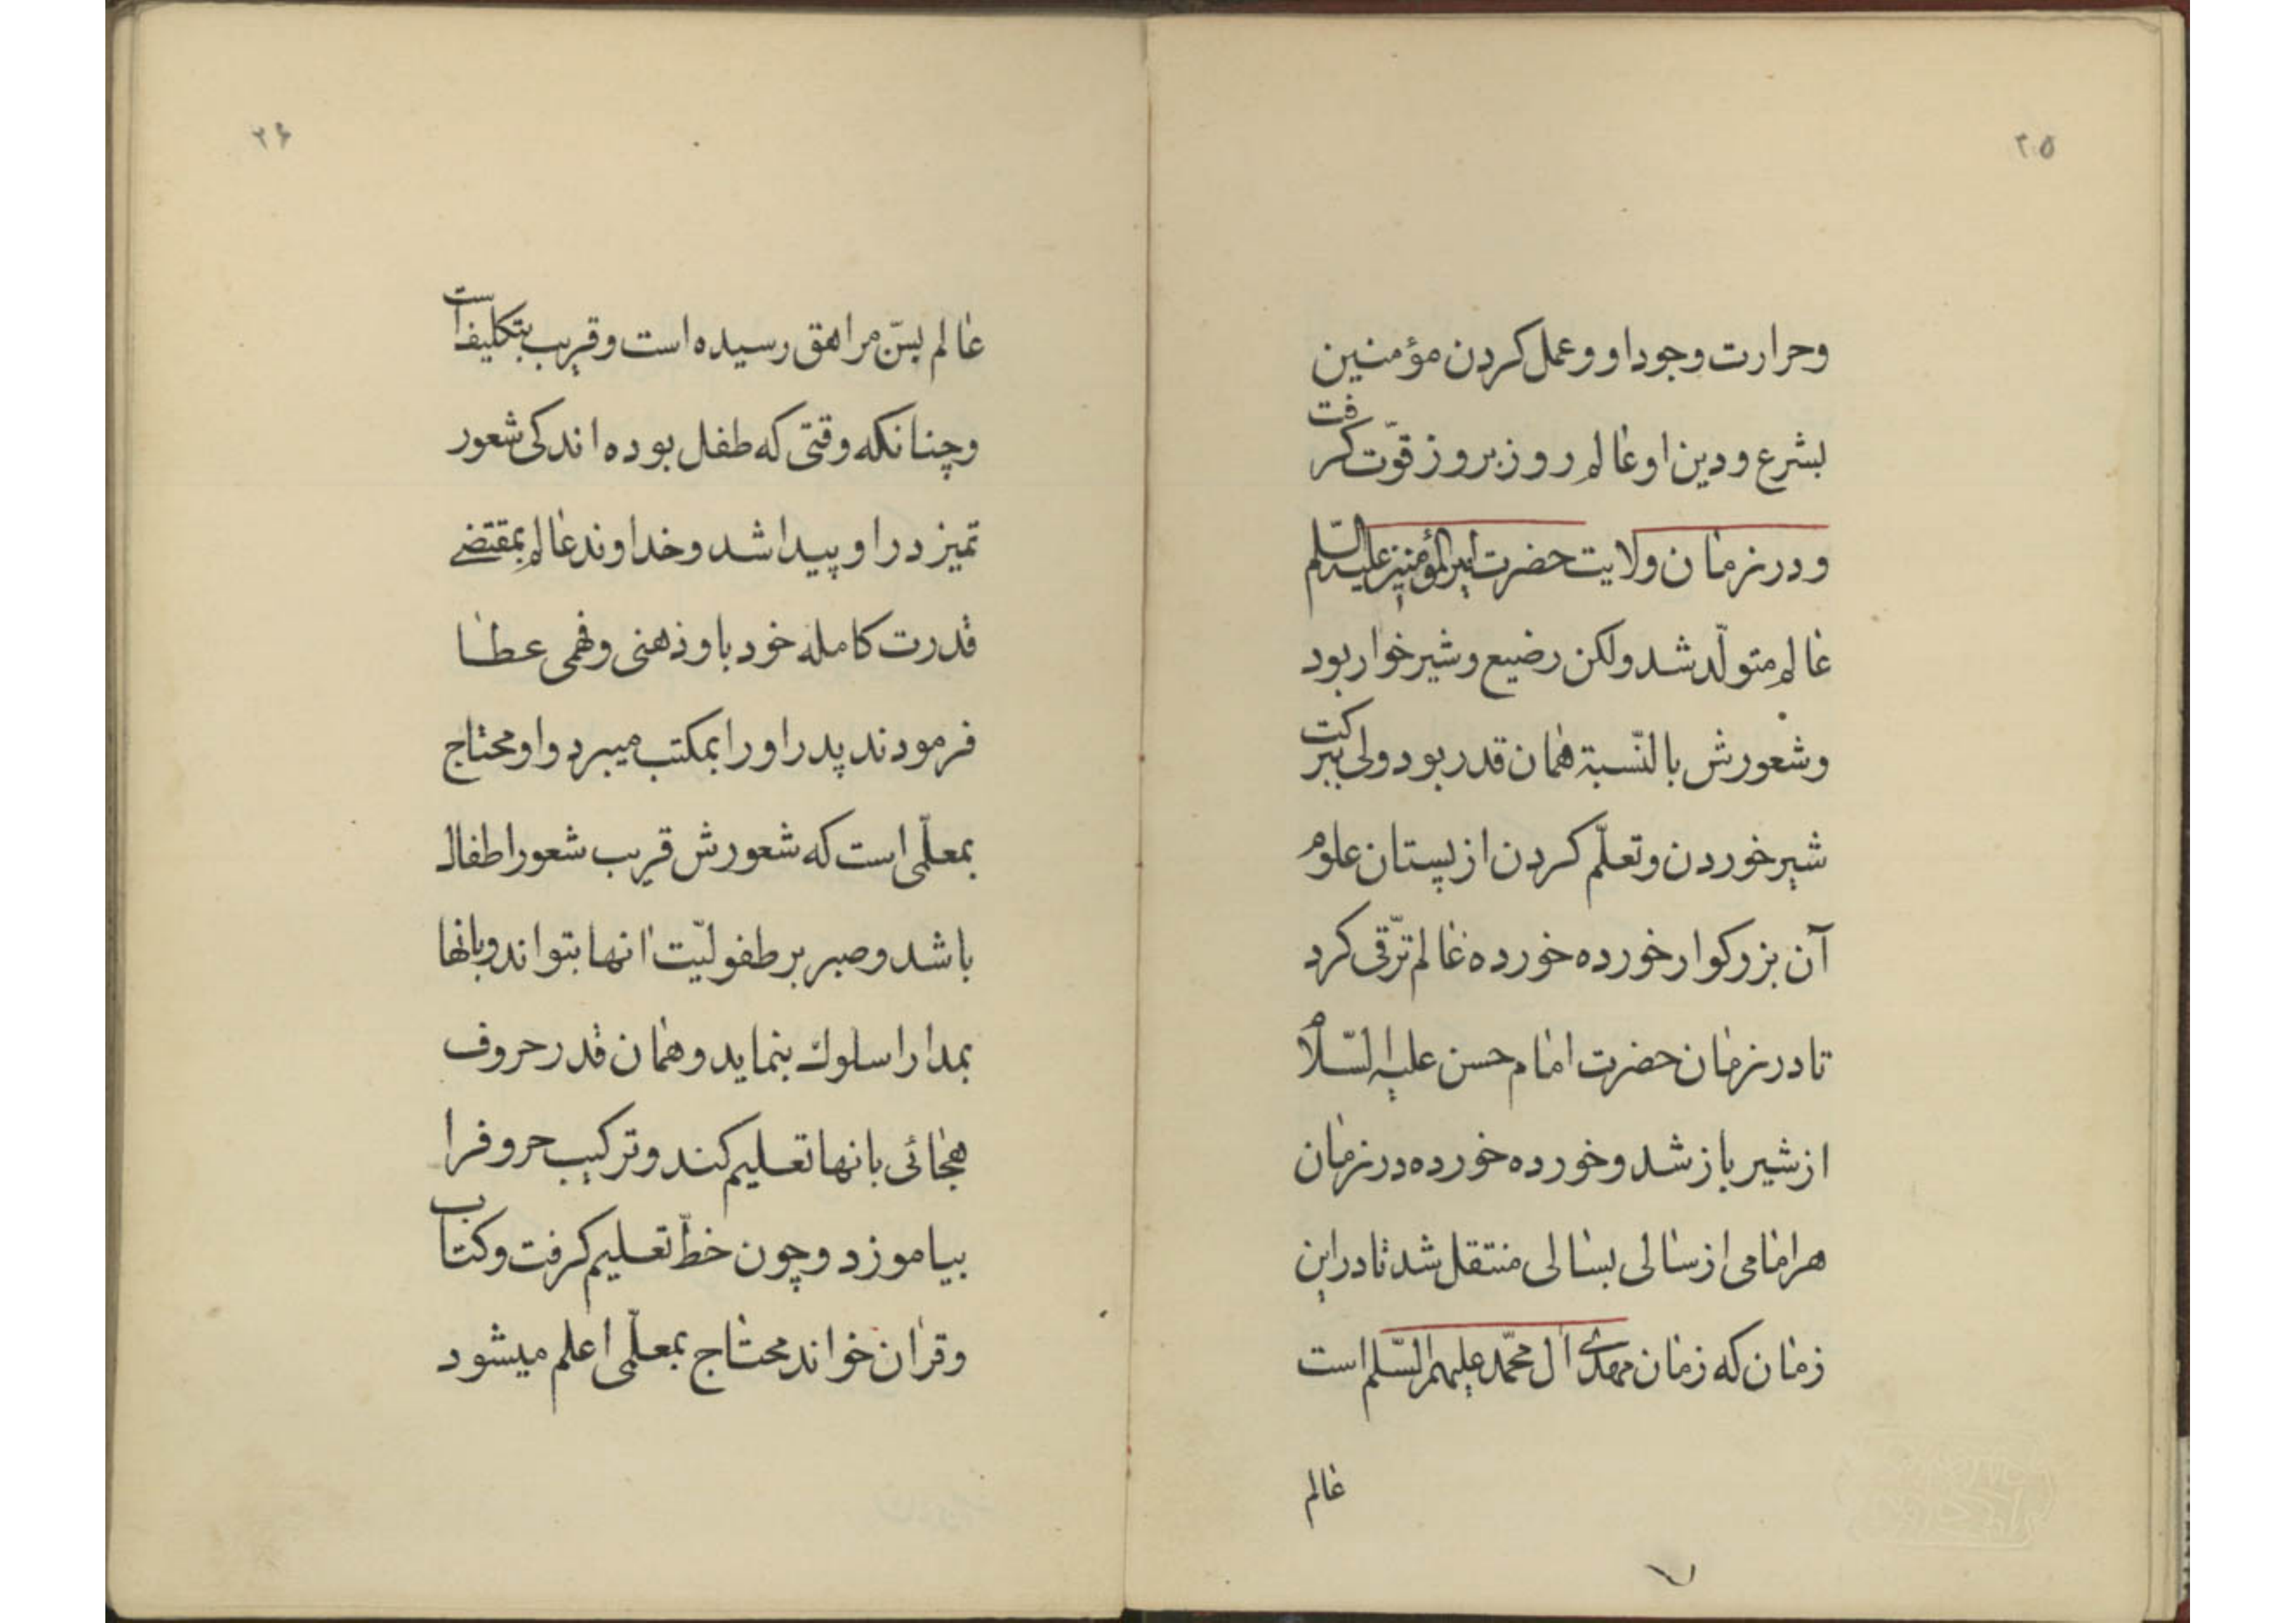 ۲۵
وحرارت وجود او وعمل کردن مؤمنین
بشرع ودین او عالم روز بروز قوّت کرفت
ودرزمان ولایت حضرت امیرالمؤمنین علیه السّلم
عالم متولّد شد ولکن رضیع وشیرخوار بود
وشعورش بالنّسبة همان قدر بود ولی ببرکت
شیرخوردن وتعلّم کردن از پستان علوم
آن بزرکوار خورده خورده عالم ترّقی کرد
تا درزمان حضرت امام حسن علیه السّلام
ازشیر باز شد وخورده خورده درزمان
هرامامی ازسالی بسالی منتقل شد تا دراین
زمان که زمان مهدی آل محمّد علیهم السّلم است
عالم
۲۶
عالم بسنّ مراهق رسیده است وقریب بتکلیف است
وچنانکه وقتی که طفل بوده اندکی شعور
تمیز در او پیدا شد وخداوند عالم بمقتضی
قدرت کامله خود باو ذهنی وفهمی عطا
فرمودند پدر اورا بمکتب میبرد واو محتاج
بمعلّمی است که شعورش قریب شعور اطفال
باشد وصبر بر طفولیّت انها بتواند وبانها
بمدارا سلوك بنماید وهمان قدر حروف
هجائی بانها تعلیم کند وترکیب حروفرا
بیاموزد وچون خطّ تعلیم کرفت وکتاب
وقران خواند محتاج بمعلّمی اعلم میشود